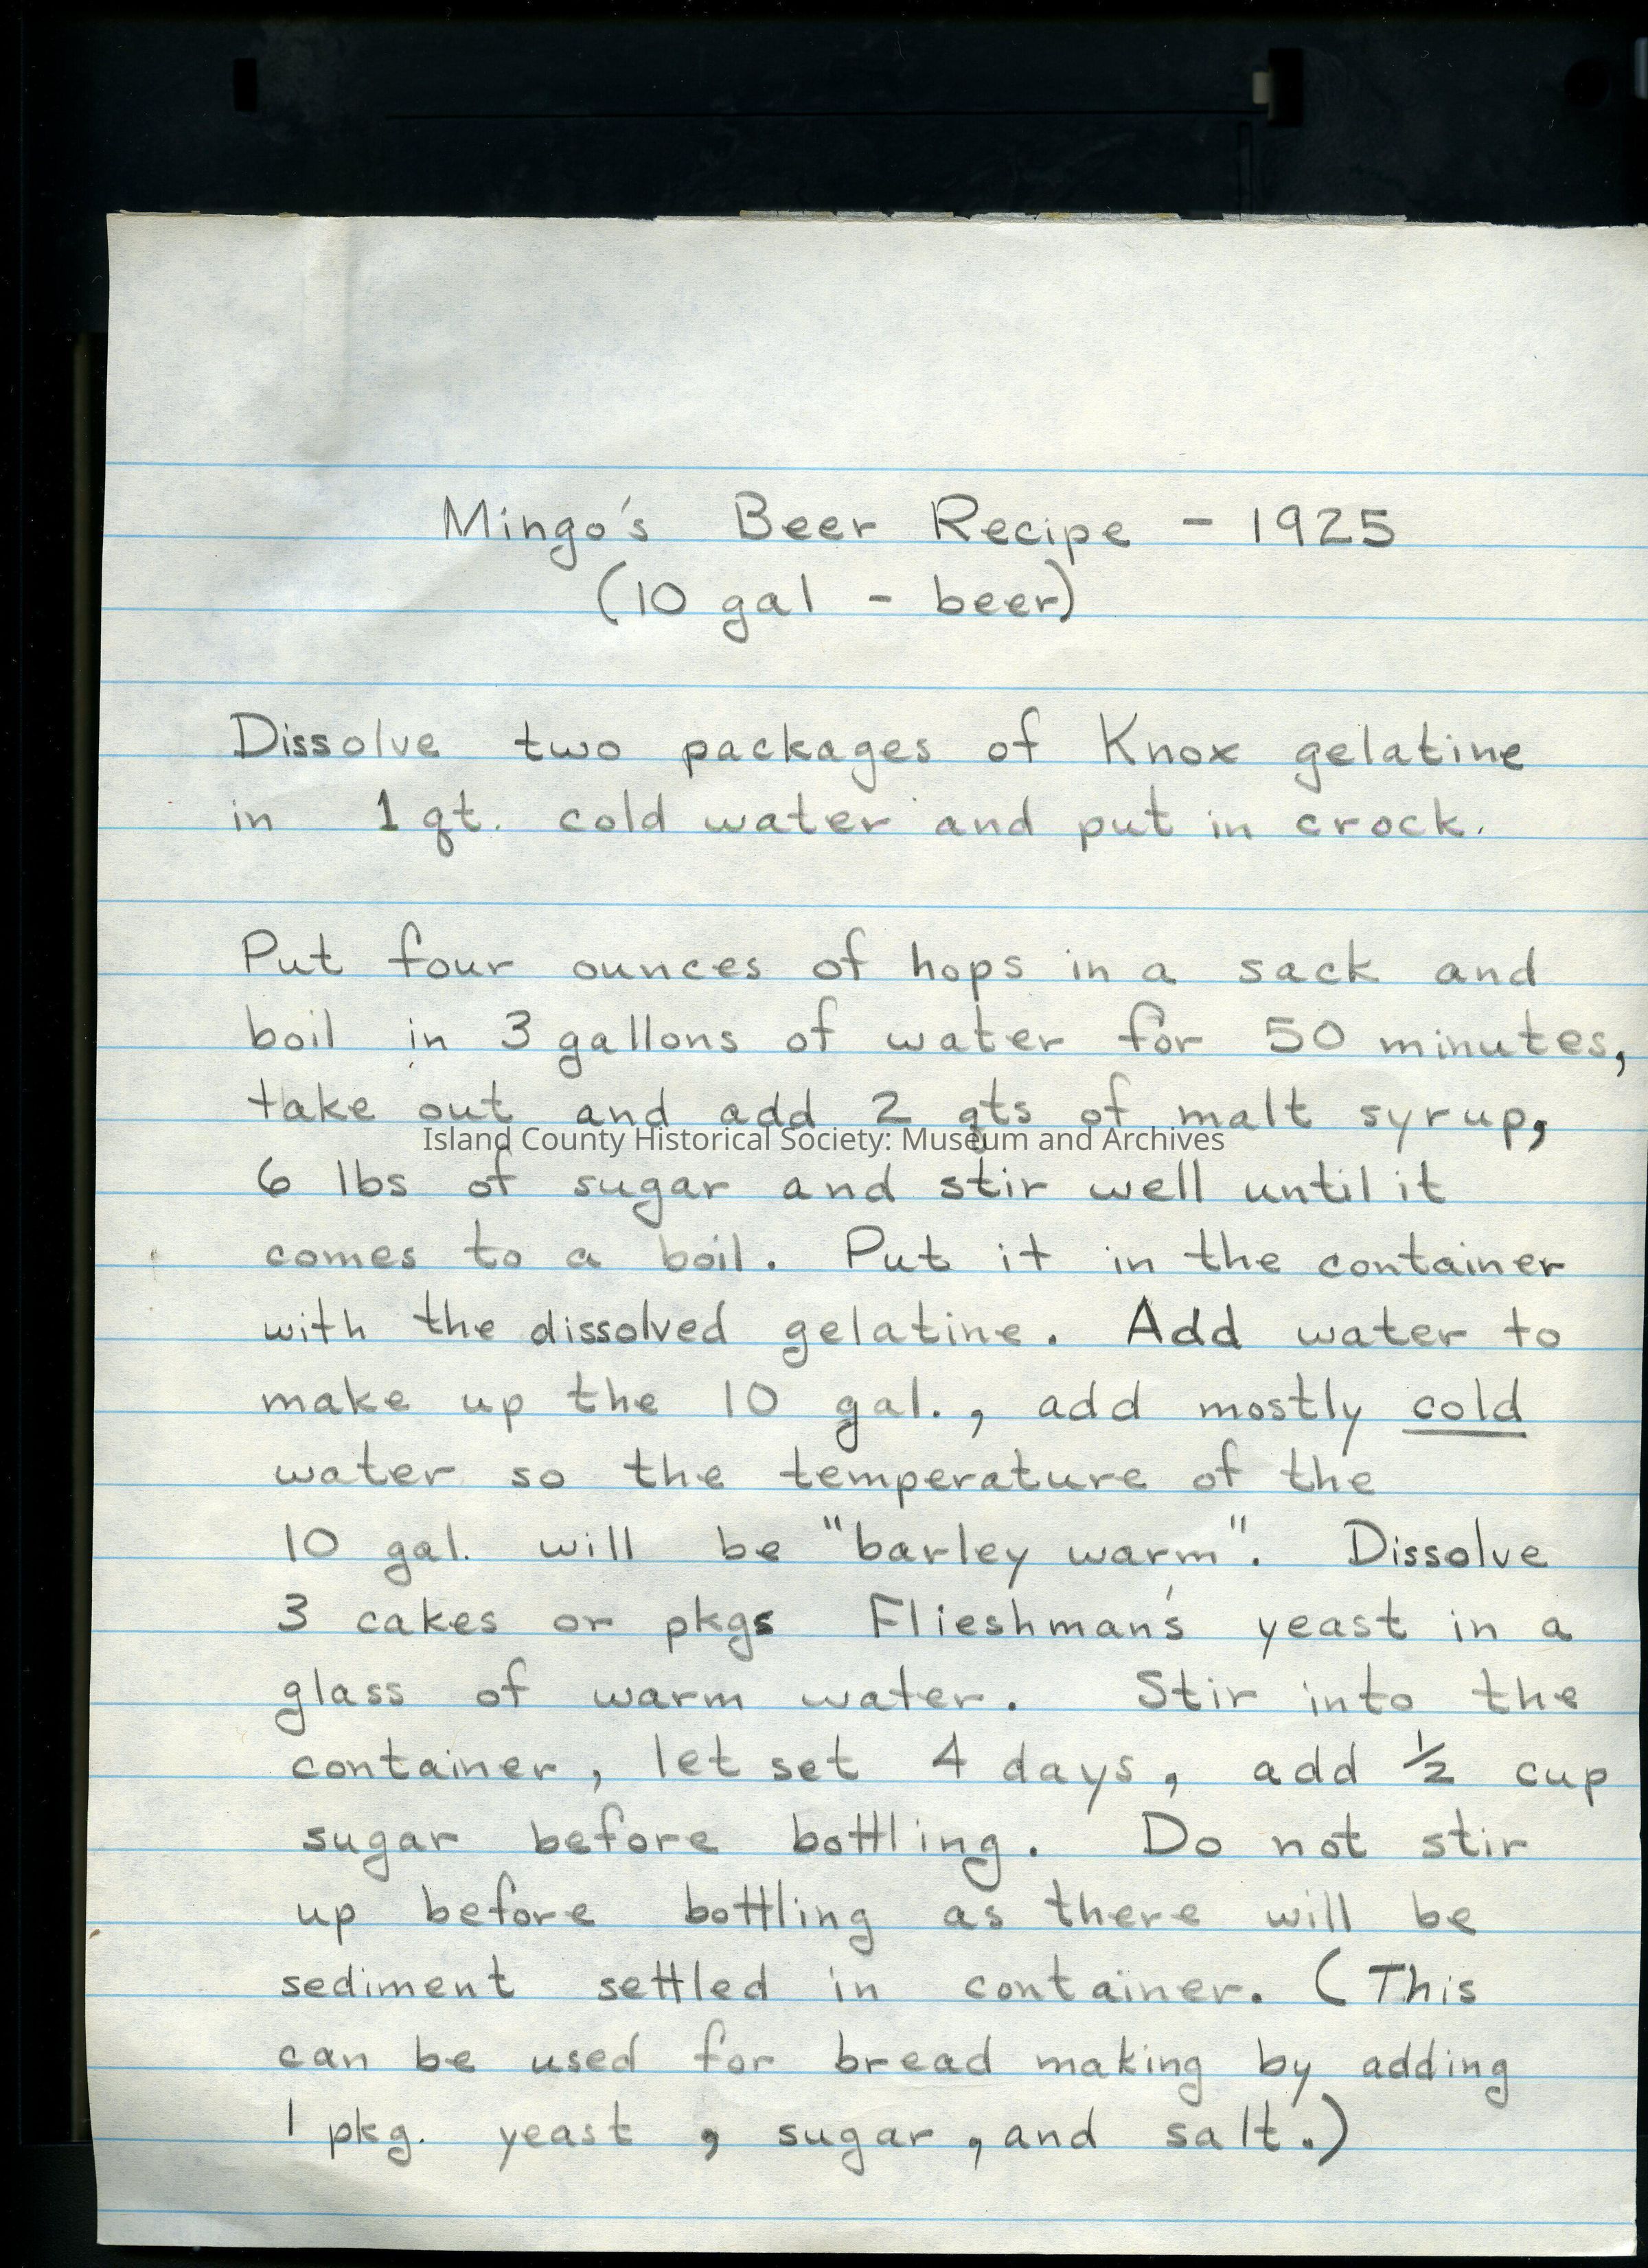 Mingo's Beer Recipe - 1925
(10 gal - beer)
Dissolve two packages of Knox gelatine
in 1 qt. cold water and put in crock.
Put four ounces of hops in a sack and
boil in 3 gallons of water for 50 minutes,
take out and add 2 qts of malt syrup,
Island County Historical Society: Museum and Archives
6 lbs of sugar and stir well until it
comes to a boil. Put it in the container
with the dissolved gelatine. Add water to
make up the 10 gal., add mostly cold
water so the temperature of the
10 gal. will be "barley warm". Dissolve
3 cakes or pkgs Flieshman's yeast in a
glass of warm water. Stir into the
container, let set 4 days, add ½ cup
sugar before bottling. Do not stir
up before bottling as there will be
sediment settled in container. (This
can be used for bread making by adding
1 pkg. yeast, sugar, and salt.)